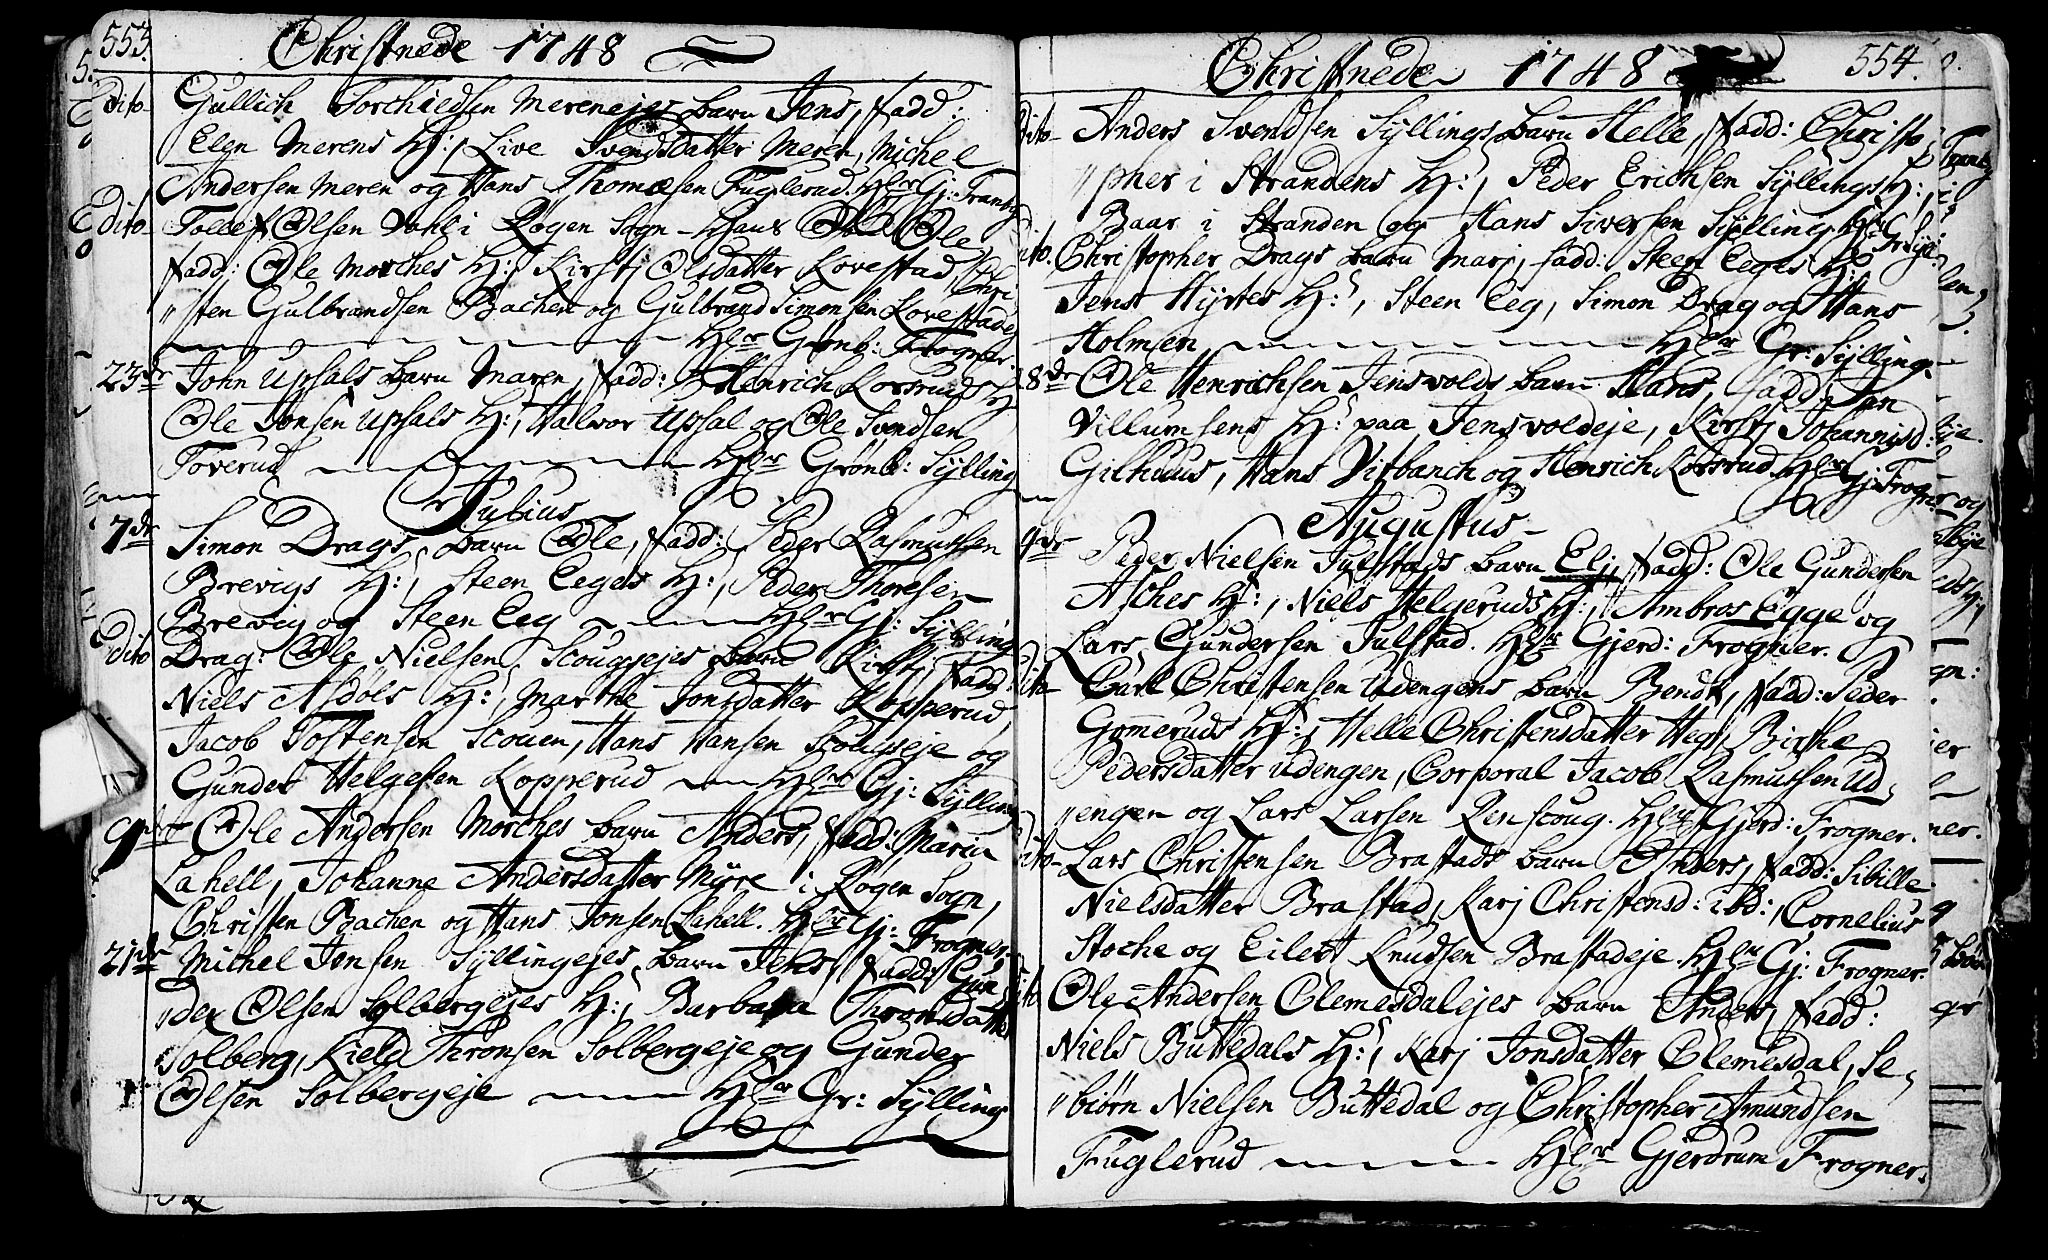 553. Christnede 1748
dito Gullich Torchildsen Merenejes barn Jens, fadd:
Elen Merens H:, Live Svendsdatter Meren, Michel
Andersen Meren og Hans Thomæsen Fuglerud. Hlr Gj: Tranby
dito Tollef Olsen Dahl i Røgen Sogn Ole
fadd: Ole Morches H:, Kirstj Olsdatter Lovestad, Chri
"sten Gulbrandsen Bachen og Gulbrand Simonsen Lovestadej
Hlr Grønb: Frogner
23de John Upsals barn Maren, fadd: Henrich Korsruds H
Ole Jonsen Upsals H:, Halvor Upsal og Ole Svendsen
Toverud Hlr Grønb: Sylling
Julius
7de Simon Drags barn Ole, fadd: Peder Rasmussen
Brevigs H:, Steen Eeges H:, Peder Thoresen
Brevig og Steen Eeg Hlr Gj: Sylling
dito Drag: Ole Nielsen Scougsejes barn Kirstj, fadd:
Niels Asdøls H:, Marthe Jonsdatter Kopperud
Jacob Tostensen Scouen, Hans Hansen Scougseje og
Gunder Helgesen Kopperud Hlr Gj: Sylling
9de Ole Andersen Morches barn Anders, fadd: Maria
Lahell, Johanne Andersdatter Myre i Røgen Sogn,
Christen Bachen og Hans Jonsen Lahell. Hlr Gj: Frogner
21de Michel Jonsen Syllingejes barn Jens, fadd: Gun
"der Olsen Solbergejes H:, Barbara Thronsdatter
Solberg, Kield Thronsen Solbergeje og Gunder
Olsen Solbergeje Hlr Gr: Sylling
Christnede 1748 554.
dito Anders Svendsen Syllings barn Helle, fadd: Christo
"pher i Strandens H:, Peder Erichsen Syllings H:,
Baar i Stranden og Hans Siversen Sylling Hlr Gr: Sylling
dito. Christopher Drags barn Marj, fadd: Steen Eeges H:
Jens Hyrtes H:, Steen Eeg, Simon Drag og Hans
Holmen Hlr Gr: Sylling
28de Ole Henrichsen Jensvolds barn Hans, fadd: Jan
Villumsens H: paa Jensvoldeje, Kirstj Johannisd:
Gilhuus, Hans Vitbanch og Henrich Korsrud. Hlr Gj: Frogner
Augustus
9de Peder Nielsen Julstads barn Elj, fadd: Ole Gundersen
Asches H:, Niels Helgeruds H:, Ambros Egge og
Lars Gundersen Julstad. Hlr Gjerd: Frogner.
dito Carl Christensen Udengens barn Bendt, fadd: Peder
Gomeruds H:, Helle Christensdatter Heg, Birthe
Pedersdatter Udengen, Corporal Jacob Rasmussen Ud
"engen og Lars Larsen Renscoug. Hlr Gjerd: Frogner.
dito Lars Christensen Brastads barn Anders, fadd: Sibille
Nielsdatter Brastad, Karj Christensd: ibd:, Cornelius
Stoche og Eilert Knudsen Brastadeje. Hlr Gj: Frogner.
dito Ole Andersen Clemesdalejes barn Anders, fadd:
Niels Buttedals H:, Karj Jonsdatter Clemesdal, Se
"biørn Nielsen Buttedal og Christopher Amundsen
Fuglerud Hlr Gjerdrum Frogner.